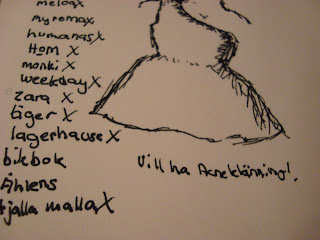 meloax
myremax
humanasX
Hom X
monki X
weekdayX
zara X
tiger X
lagerhauseX
bikbok
Åhlens
tjalla mallaX
Vill ha Acneklänning!